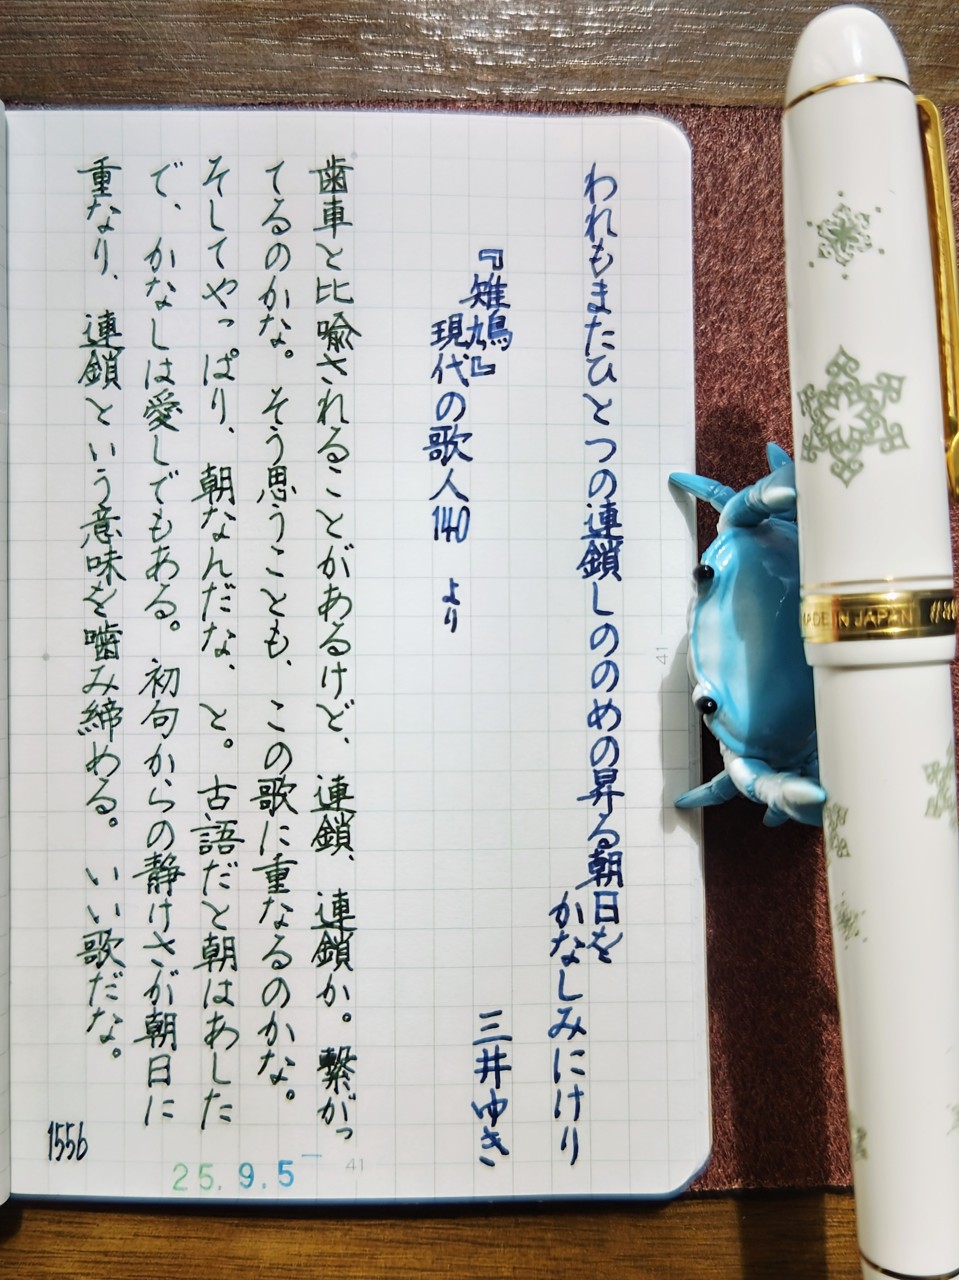 われもまたひとつの連鎖しののめの昇る朝日を
かなしみにけり
三井ゆき
『雉鳩』
現代の歌人140 より
歯車と比喩されることがあるけど、連鎖、連鎖か。繋がっ
てるのかな。そう思うことも、この歌に重なるのかな。
そしてやっぱり、朝なんだな、と。古語だと朝はあした
で、かなしは愛しでもある。初句からの静けさが朝日に
重なり、連鎖という意味を噛み締める。いい歌だな。
1556
25.9.5
41
41
MADE IN JAPAN